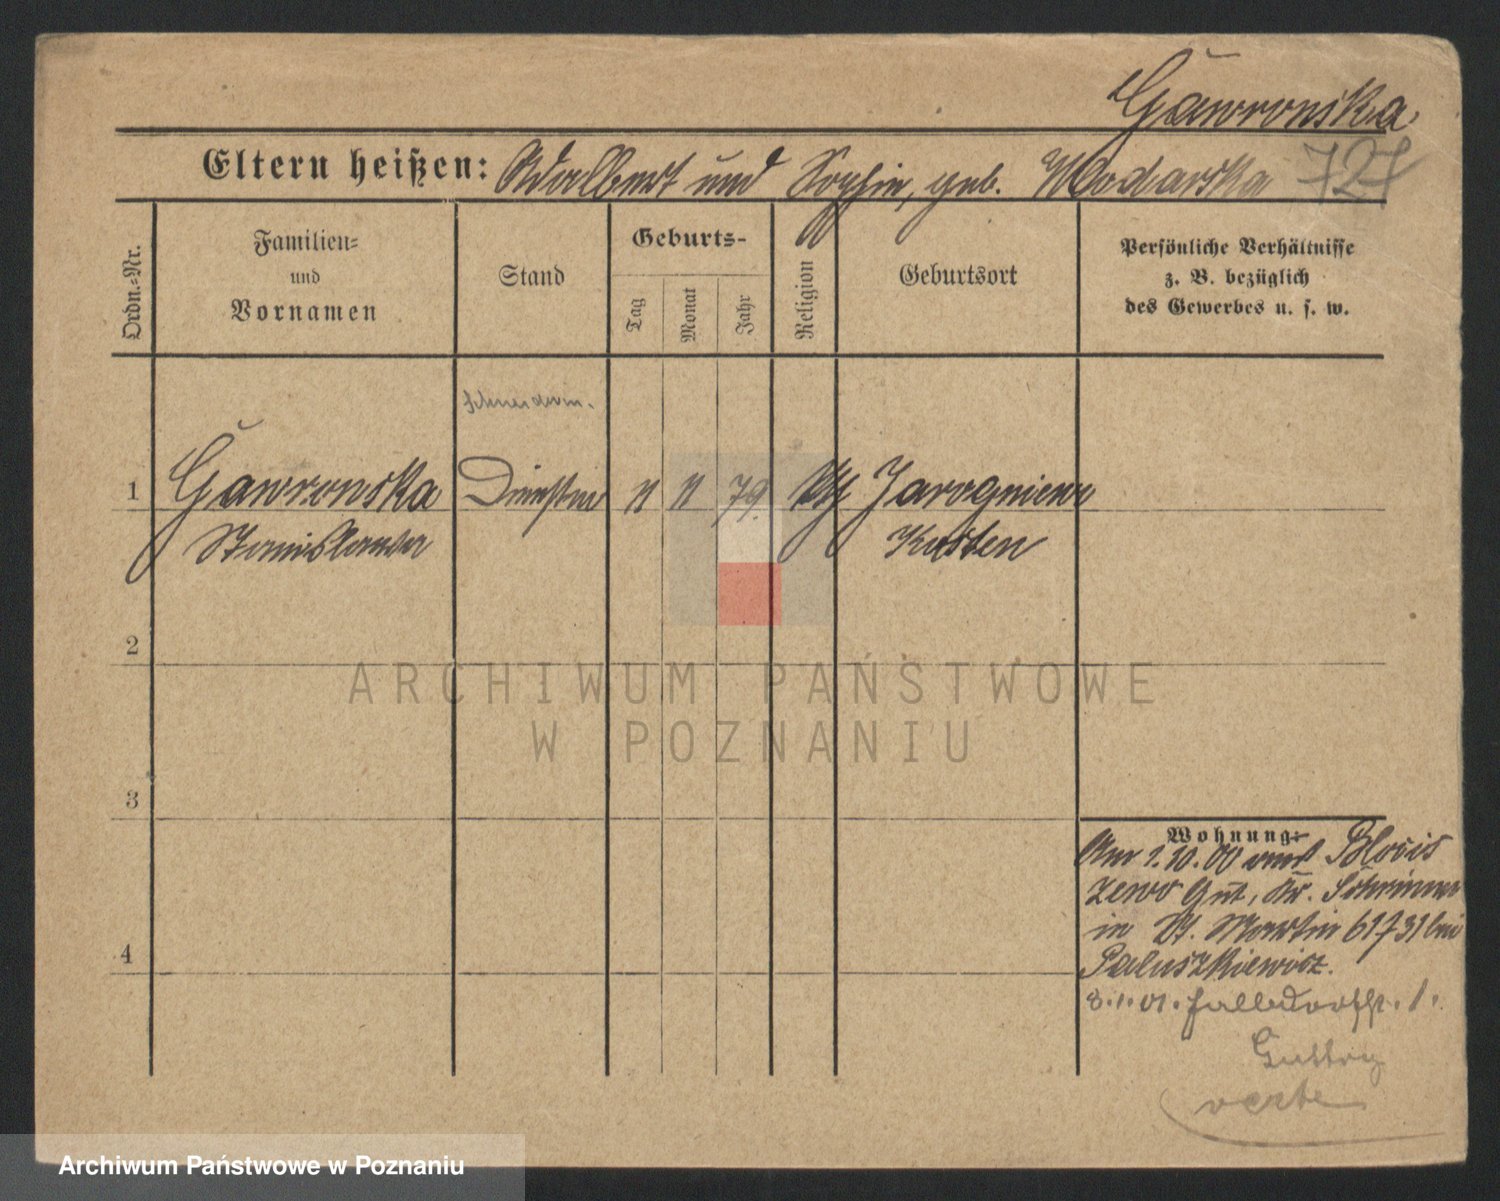 Gawronska
727
Eltern heißen: Adalbert und Sophie, geb. Modarska
Ordn.=Nr.
Familien=
und
Vornamen
Stand
Geburts-
Tag
Monat
Jahr
Religion
Geburtsort
Persönliche Verhältnisse
z. B. bezüglich
des Gewerbes u. s. w.
Schneiderin.
1 Gawronska Dienstm 11 11 79. kth Jarogniew
Stanislawa Kosten
2
3
4
ARCHIWUM PAŃSTWOWE
W POZNANIU
Wohnung:
Am 1.10.00 von Blocis
zewo Gut, Kr. Schrimm
in St. Martin 61731 bei
Paluszkiewicz.
8.1.01. Halbdorfstr. 1.
verte
Archiwum Państwowe w Poznaniu